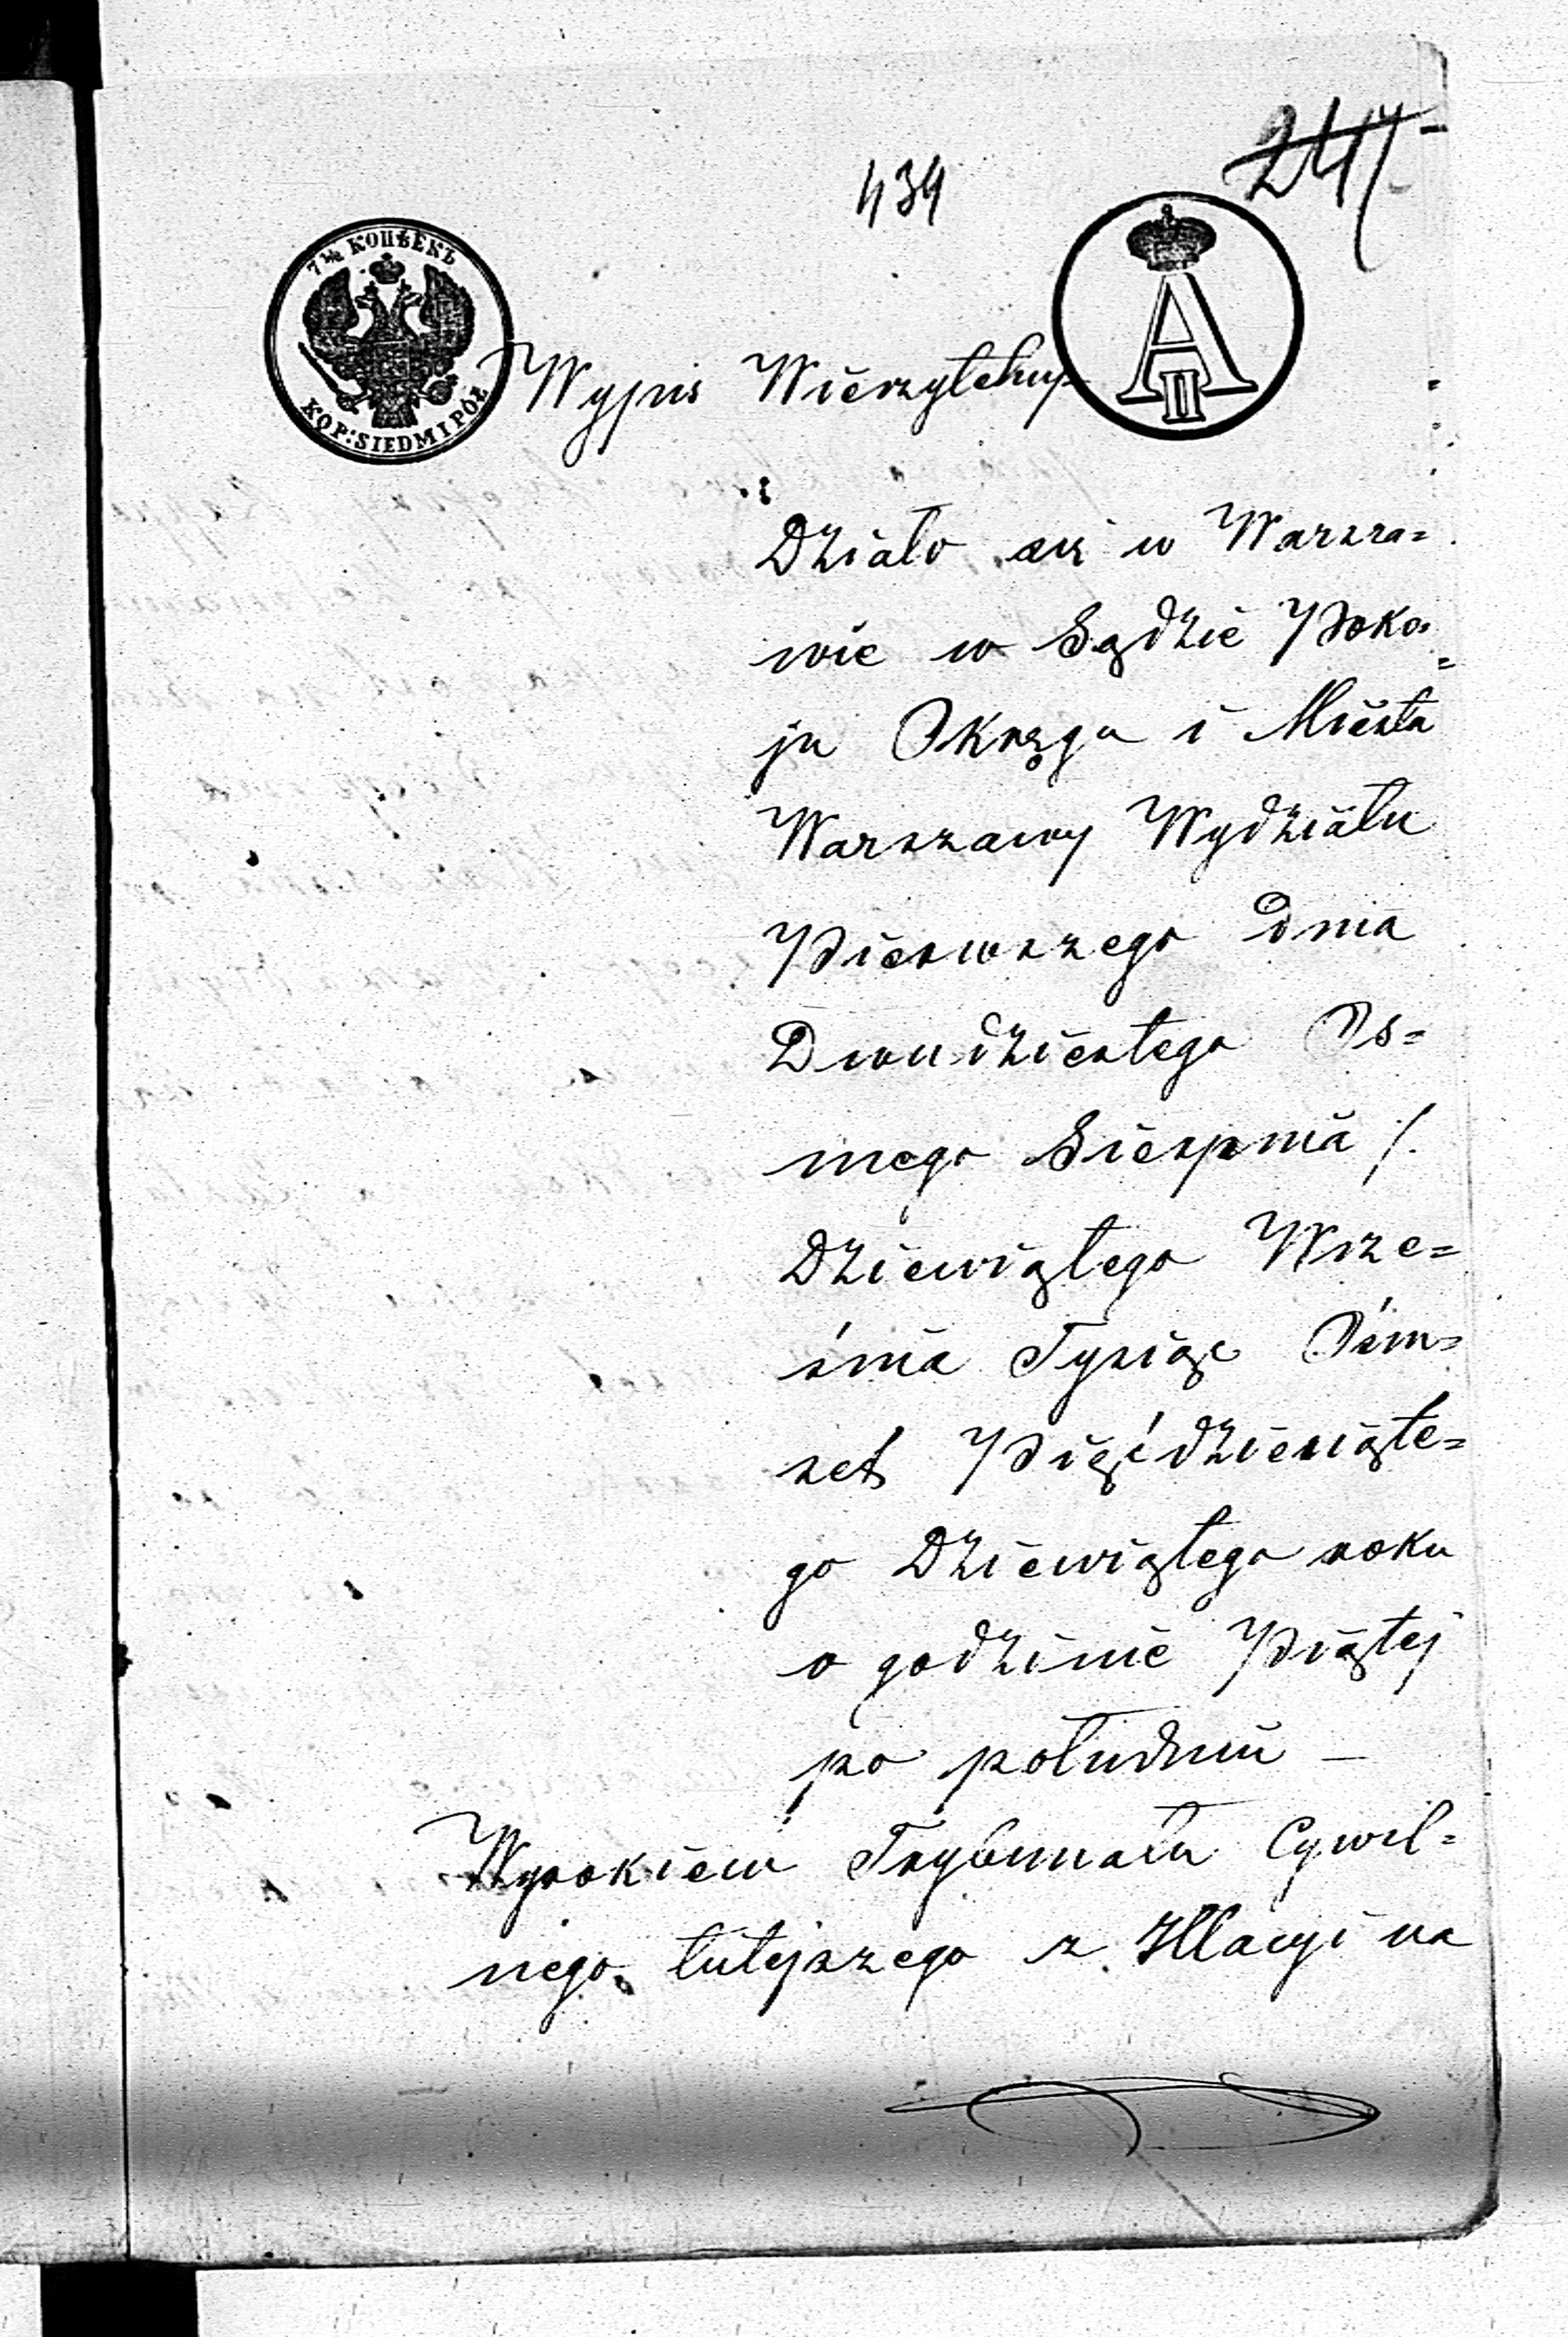 247
434
7½ КОПѢЕКЪ
KOP: SIEDM I PÓŁ
A II
Wypis Wierzytelny
Działo się w Warsza=
wie w Sądzie Poko=
ju Okręgu i Miasta
Warszawy Wydziału
Pierwszego dnia
Dwudziestego Os=
mego Sierpnia /.
Dziewiątego Wrze=
śnia Tysiąc Óśm=
set Pięćdziesiąte=
go Dziewiątego roku
o godzinie Piątej
po południu —
Wyrokiem Trybunału Cywil=
nego tutejszego z Illacyi na